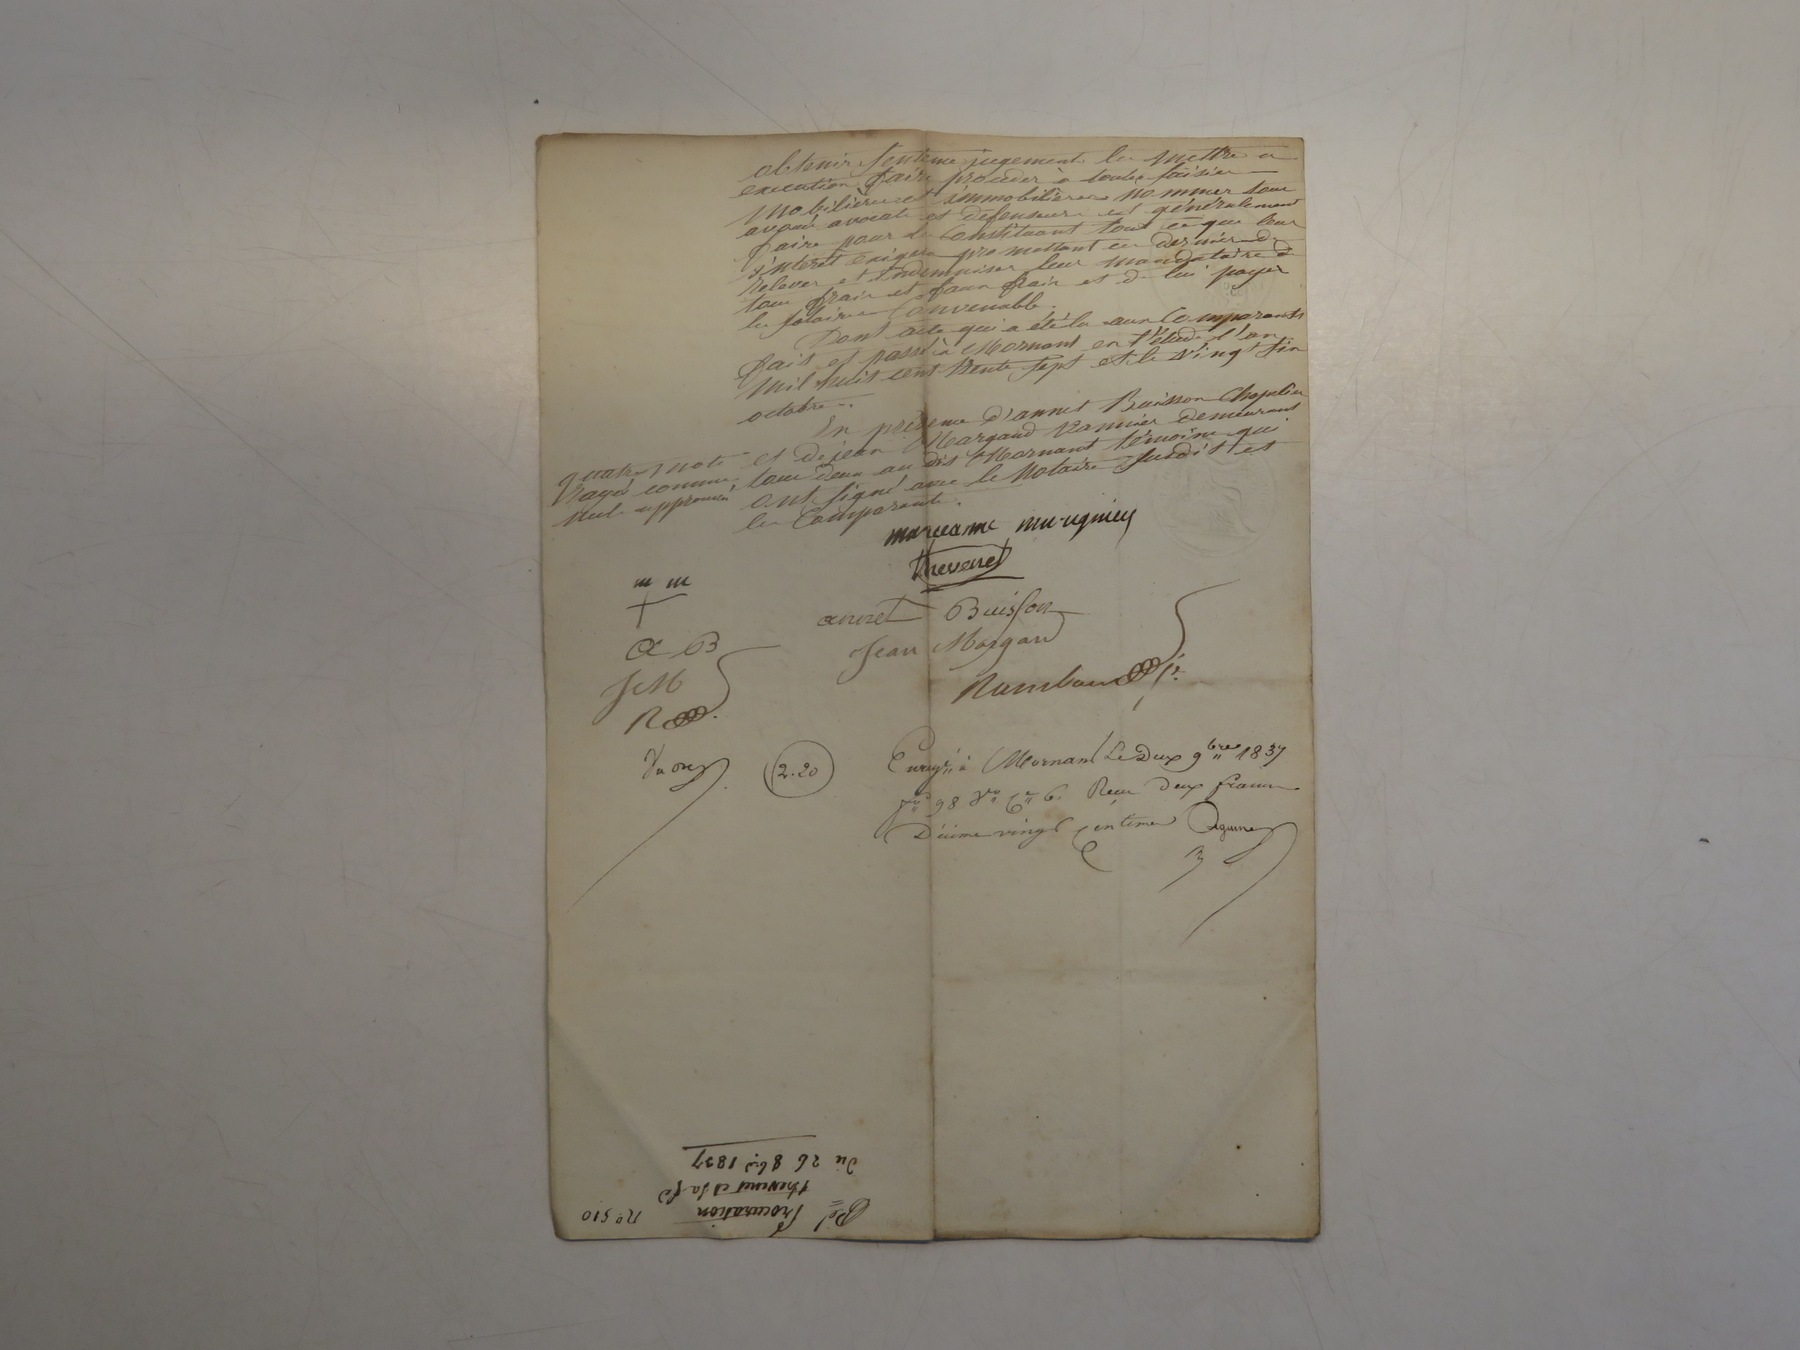 obtenir sentence jugement les mettre a
execution, faire proceder à toutes saisies
mobilières et immobilières nommer tous
avoués avocats et defenseurs et généralement
faire pour les Constituants tout ce que leur
intérêt exigera promettant ces derniers de
relever et indemniser leur mandataire de
tous frais et faux frais et de lui payer
les salaires Convenable.
Dont acte qui a été lu aux Comparants
fait et passé à Mornant en l'étude l'an
mil huit cent trente sept et le vingt six
octobre.
En présence d'annet Buisson Chapelier
et de jean Margand Vannier demeurant
tous deux au dit Mornant témoins qui
ont signé avec le Notaire susdit et
les Comparants.
quatre mots
rayés comme
nuls approuvés
marianne murigniey
thevenet
annet Buisson
Jean Margand
m m
+
A B
J M
R
2.20
Enregré à Mornant le Deux 9bre 1837
98 Vo Ce 6. Reçu deux francs
Décime vingt Centimes
No 510
Procuration
thevenet et sa fe
Du 26 8bre 1837